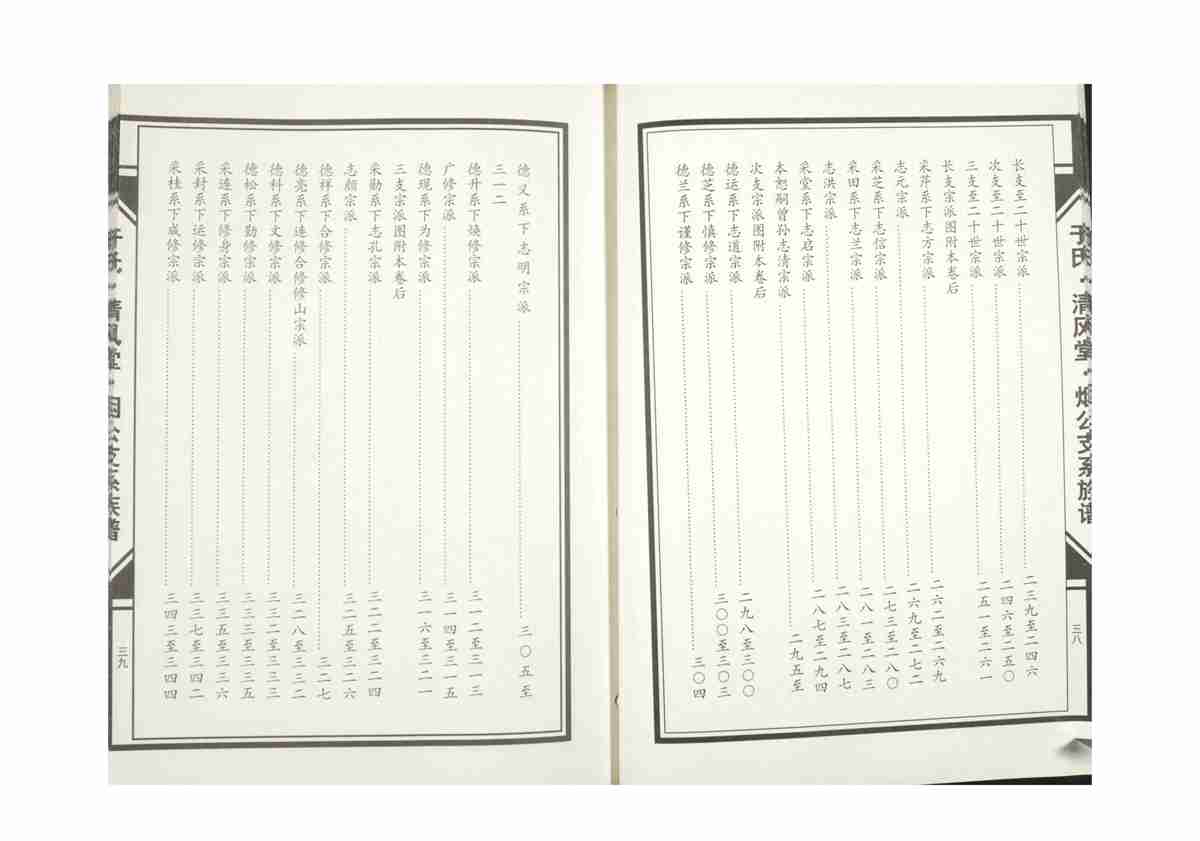 于氏·清风堂·烟公支系族谱
三八
长支至二十世宗派……二三九至二四六
次支至二十世宗派……二四六至二五〇
三支至二十世宗派……二五一至二六一
长支宗派图附本卷后
采芹系下志方宗派……二六二至二六九
志元宗派……二六九至二七二
采芝系下志信宗派……二七三至二八〇
采田系下志兰宗派……二八一至二八三
志洪宗派……二八三至二八七
采堂系下志启宗派……二八七至二九四
本恕嗣曾孙志清宗派……二九五至
次支宗派图附本卷后
德运系下志道宗派……二九八至三〇〇
德芝系下慎修宗派……三〇〇至三〇三
德兰系下谨修宗派……三〇四
德义系下志明宗派……三〇五至
三一二
德升系下焕修宗派……三一二至三一三
广修宗派……三一四至三一五
德现系下为修宗派……三一六至三二一
三支宗派图附本卷后
采勋系下志孔宗派……三二二至三二四
志颜宗派……三二五至三二六
德祥系下合修宗派……三二七
德亮系下连修合修修山宗派……三二八至三三二
德科系下文修宗派……三三二至三三三
德松系下勤修宗派……三三三至三三五
采连系下修身宗派……三三五至三三六
采封系下运修宗派……三三七至三四二
采桂系下咸修宗派……三四三至三四四
三九